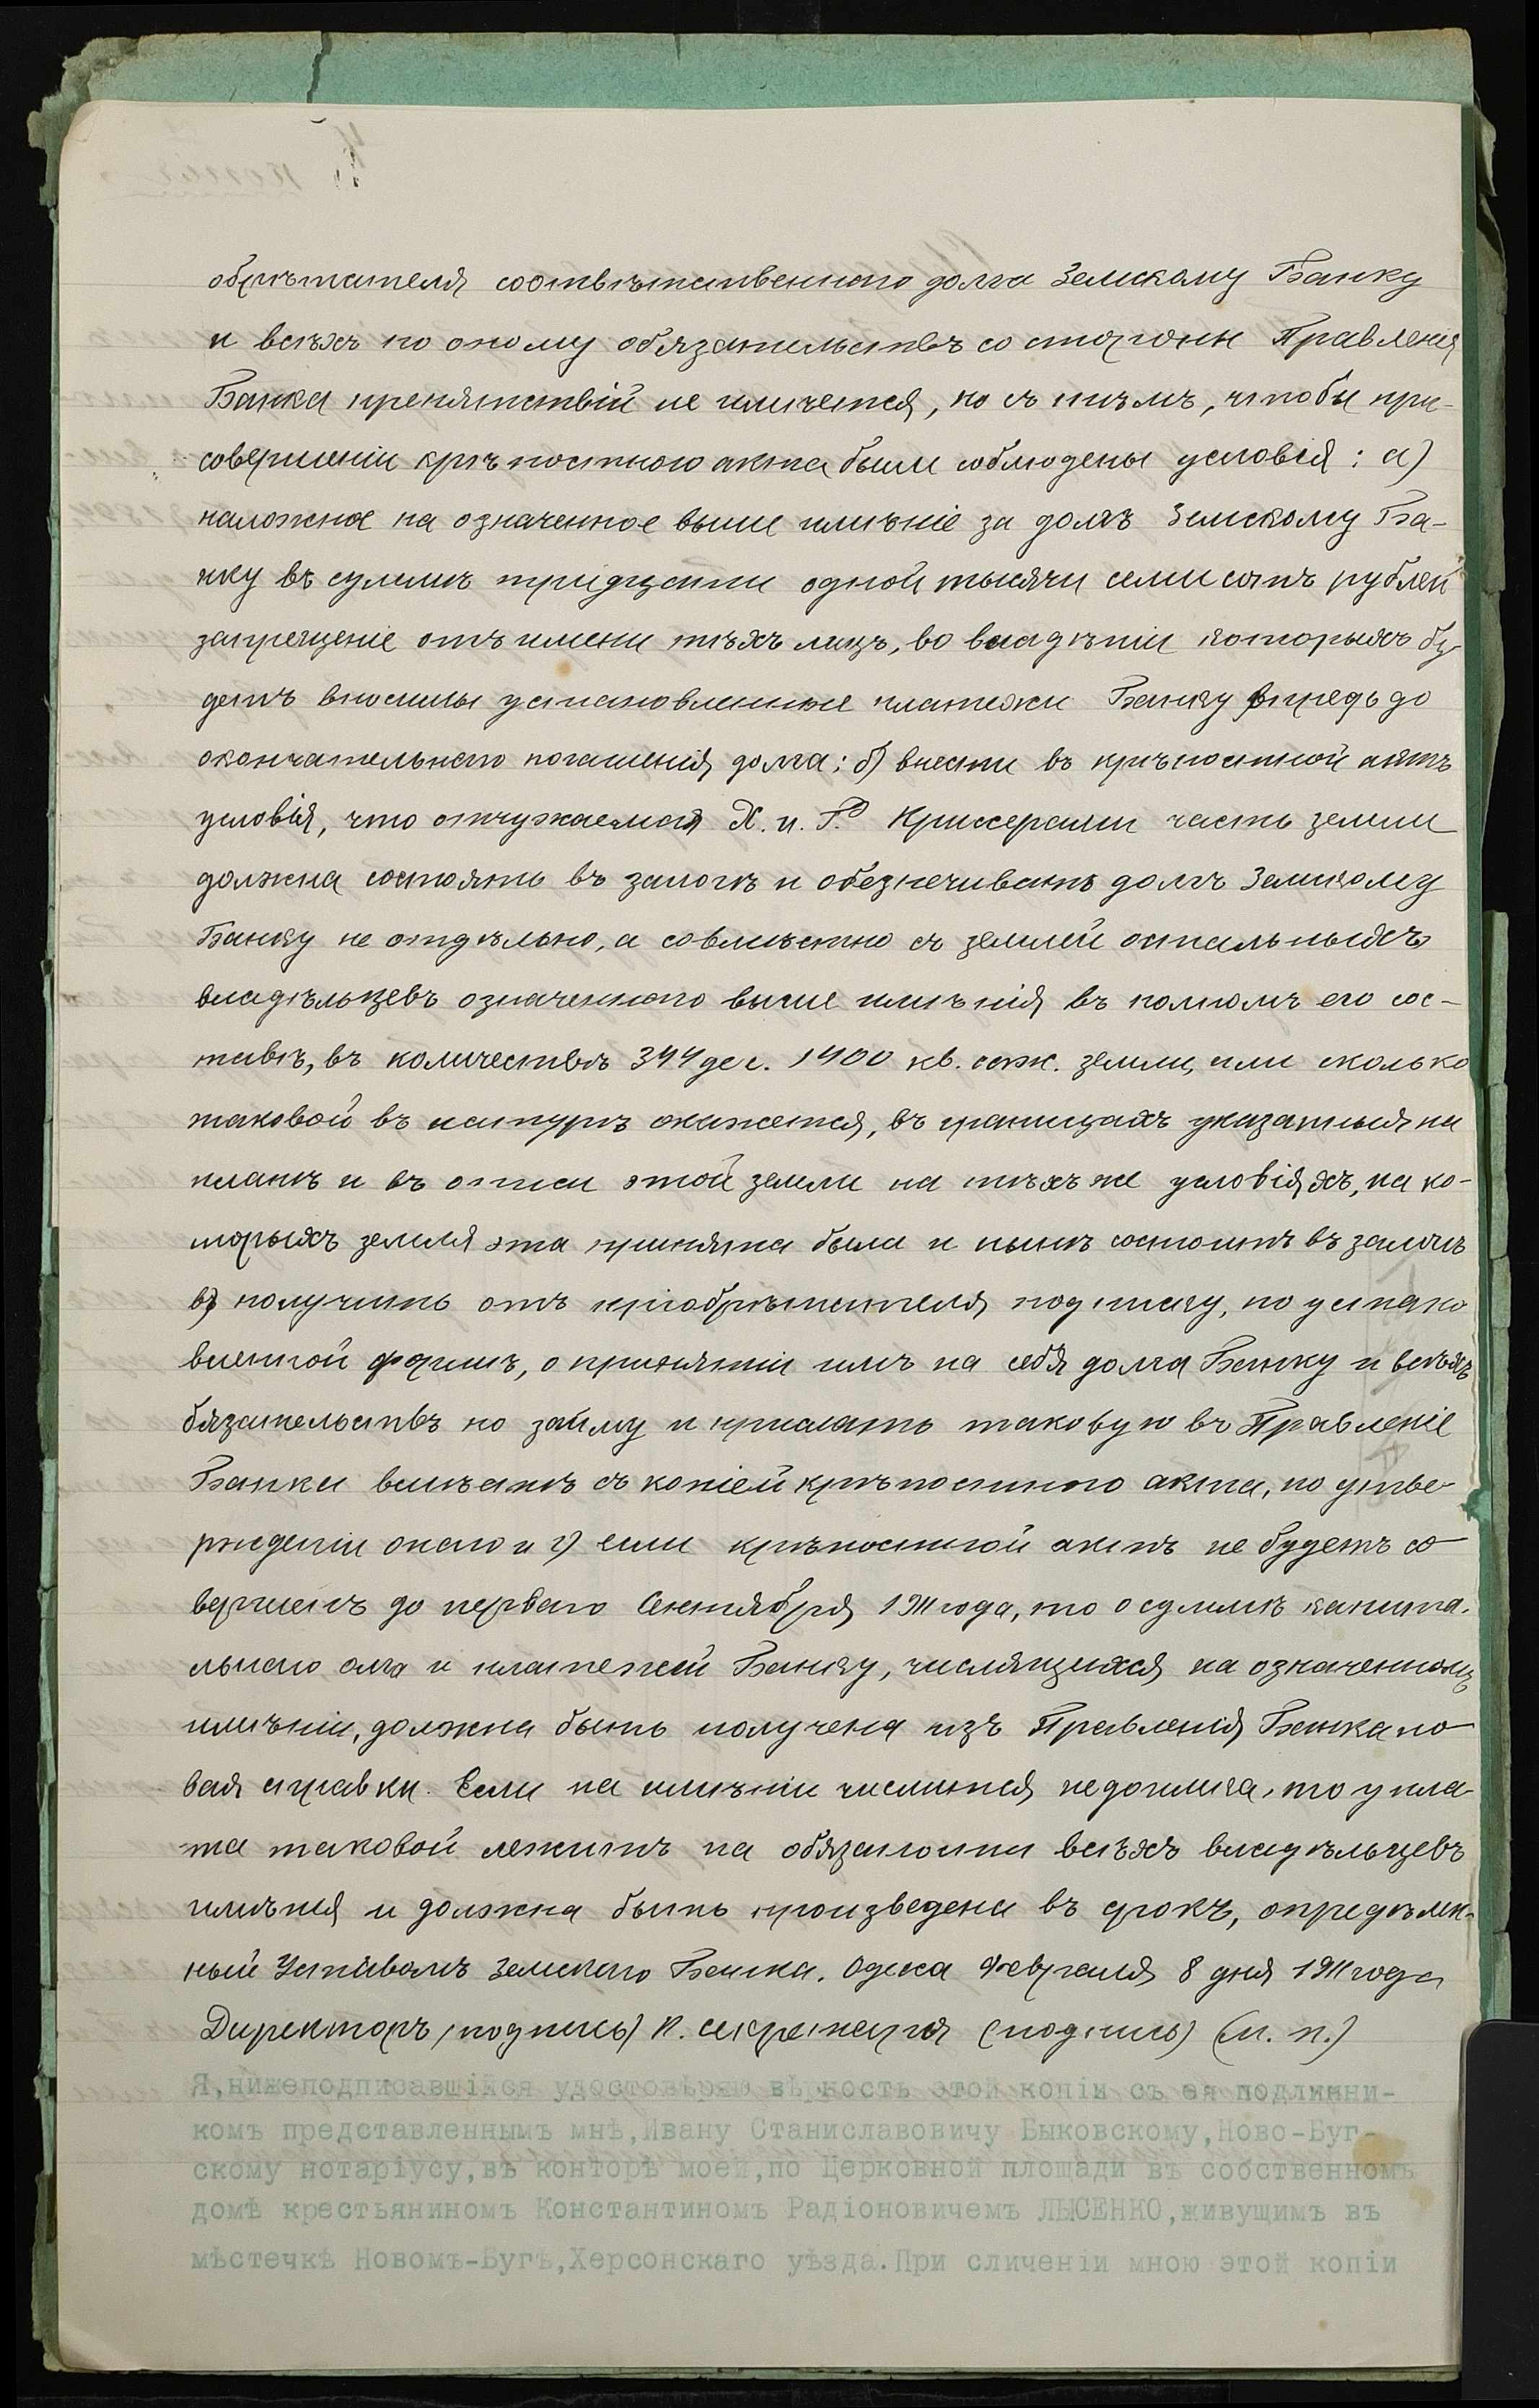 копія
обрѣтателя соотвѣтственнаго долга Земскому Банку
и всѣхъ по оному обязательствъ со стороны Правленія
Банка препятствій не имѣется, но съ тѣмъ, чтобы при-
совершеніи крѣпостного акта были соблюдены условія: а)
наложное на означенное выше имѣніе за долгъ Земскому Ба-
нку въ суммѣ тридцати одной тысячи семисотъ рублей
запрещеніе отъ имени тѣхъ лицъ, во владѣніи которыхъ бу
детъ вносимы установленные платежи Банку впредь до
окончательнаго погашенія долга; б) внести въ крѣпостной актъ
условія, что отчуждаемая Х. и. Г. Криссерами часть земли
должна состоять въ залогѣ и обезпечивать долгъ Земскому
Банку не отдѣльно, а совмѣстно съ землей остальныхъ
владѣльцевъ означеннаго выше имѣнія въ полномъ его сос-
тавѣ, въ количествѣ 344 дес. 1400 кв. саж. земли, или сколько
таковой въ натурѣ окажется, въ границахъ указанныя на
планѣ и въ описи этой земли на тѣхъ же условіяхъ, на ко-
торыхъ земля эта принята была и нынѣ состоитъ въ залогѣ
в) получить отъ пріобрѣтателя подписку, по устано
вленной формѣ, о принятіи имъ на себя долга Банку и всѣхъ
бязательствъ по займу и прислать таковую въ Правленіе
Банка вмѣстѣ съ копіей крѣпостного акта, по утве-
ржденіи онаго и г) если крѣпостной актъ не будетъ со-
вершенъ до перваго Сентября 1911 года, то о суммѣ капита-
льнаго долга и платежей Банку, числящихся на означенномъ
имѣніи, должна быть получена изъ Правленія Банка но-
вая справки. Если на имѣніи числится недоимка, то упла-
та таковой лежитъ на обязаности всѣхъ владѣльцевъ
имѣнія и должна быть произведена въ срокъ, опредѣлен-
ный Уставомъ Земскаго Банка. Одесса Февраля 8 дня 1911 года
Директоръ (подпись) п. секретаря (подпись) (м. п.)
Я,нижеподписавшійся удостовѣряю вѣрность этой копіи съ ея подлинни-
комъ представленнымъ мнѣ,Ивану Станиславовичу Быковскому,Ново-Буг-
скому нотаріусу,въ конторѣ моей,по Церковной площади въ собственномъ
домѣ крестьяниномъ Константиномъ Радіоновичемъ ЛЫСЕНКО,живущимъ въ
мѣстечкѣ Новомъ-Бугѣ,Херсонскаго уѣзда.При сличеніи мною этой копіи